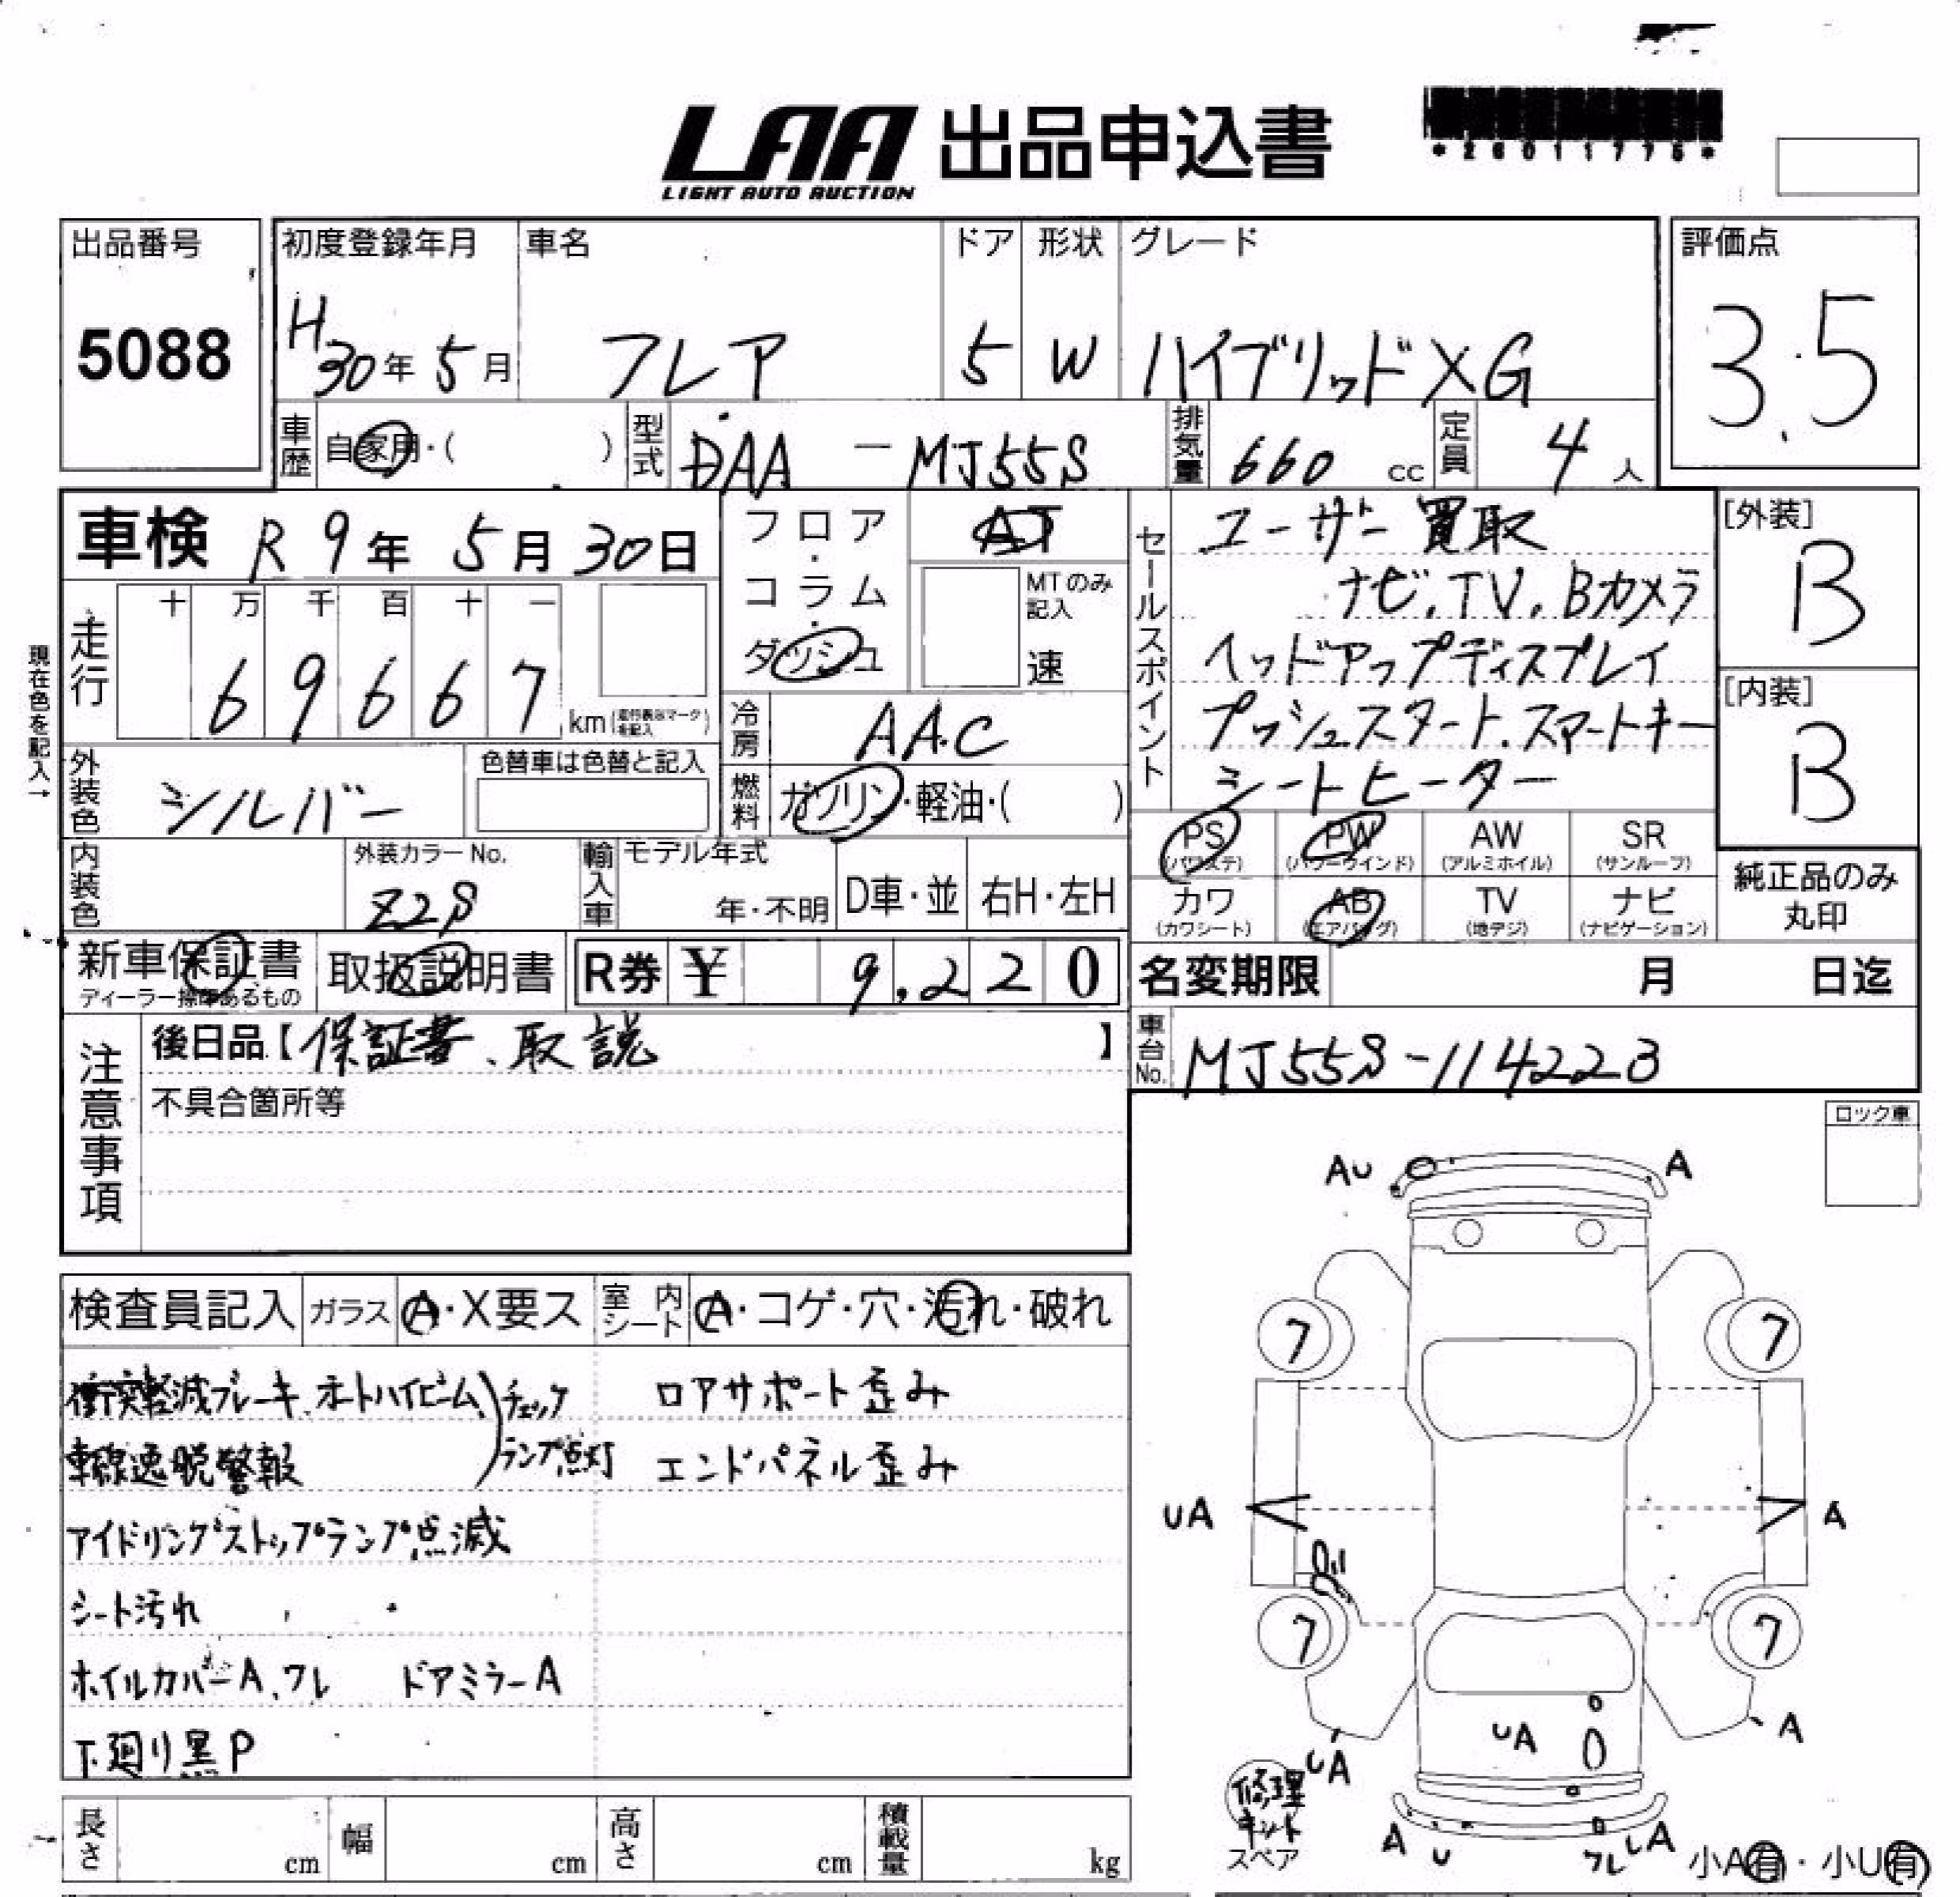 LAA 出品申込書
LIGHT AUTO AUCTION
*26011775*
出品番号
5088
初度登録年月
H30年5月
車名
フレア
ドア
5
形状
W
グレード
ハイブリッドXG
評価点
3.5
車歴
自家用・( )
型式
DAA-MJ55S
排気量
660cc
定員
4人
車検 R9年5月30日
現在色を記入→
走行
十万千百十一
69667
km(走行表示マークを記入)
フロア・コラム・ダッシュ
AT
MTのみ記入
速
冷房
AAC
燃料
ガソリン・軽油・( )
外装色
シルバー
色替車は色替と記入
内装色
外装カラーNo.
Z2S
輸入車
モデル年式
年・不明
D車・並
右H・左H
セールスポイント
ユーザー買取
ナビ.TV.Bカメラ
ヘッドアップディスプレイ
プッシュスタート.スマートキー
シートヒーター
[外装]
B
[内装]
B
PS (パワステ)
PW (パワーウインド)
AW (アルミホイル)
SR (サンルーフ)
カワ (カワシート)
AB (エアバッグ)
TV (地デジ)
ナビ (ナビゲーション)
純正品のみ
丸印
新車保証書
取扱説明書
R券 ¥ 9,220
名変期限 月 日迄
車台No.
MJ55S-114223
注意事項
後日品【保証書、取説】
不具合箇所等
ロック車
検査員記入
ガラス
A・X要ス
室内シート
A・コゲ・穴・汚れ・破れ
衝突軽減ブレーキ、オートハイビーム、
車線逸脱警報
)チェック
ランプ点灯
アイドリングストップランプ点滅
シート汚れ
ホイルカバーA、ワレ ドアミラーA
下廻り黒P
ロアサポート歪み
エンドパネル歪み
AU
A
7
7
UA
A
7
7
UA
A
UA
修理キット
スペア
A
U
ワレ
LA
小A有・小U有
長さ cm
幅 cm
高さ cm
積載量 kg